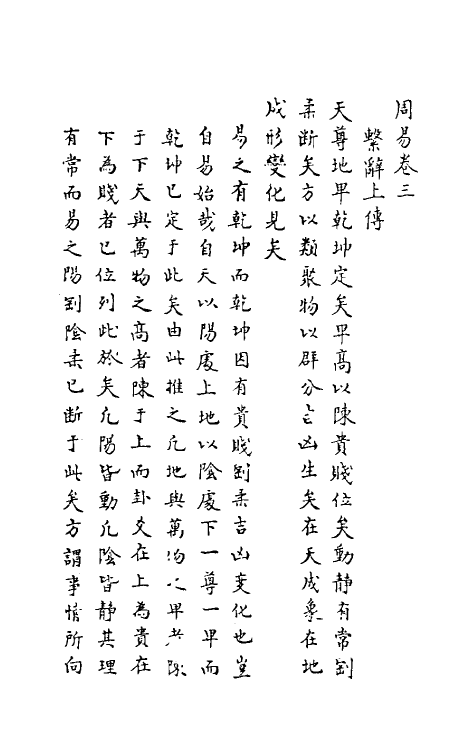 周易卷三
繫辭上傳
天尊地卑乾坤定矣卑高以陳貴賤位矣動靜有常剛
柔斷矣方以類聚物以群分吉凶生矣在天成象在地
成形變化見矣
易之有乾坤而乾坤因有貴賤剛柔吉凶变化也豈
自易始哉自天以陽處上地以陰處下一尊一卑而
乾坤已定于此矣由此推之凡地與萬物之卑者陳
于下天與萬物之高者陳于上而卦爻在上為貴在
下為賤者已位列此於矣凡陽皆動凡陰皆静其理
有常而易之陽剛陰柔已断于此矣方謂事情所向